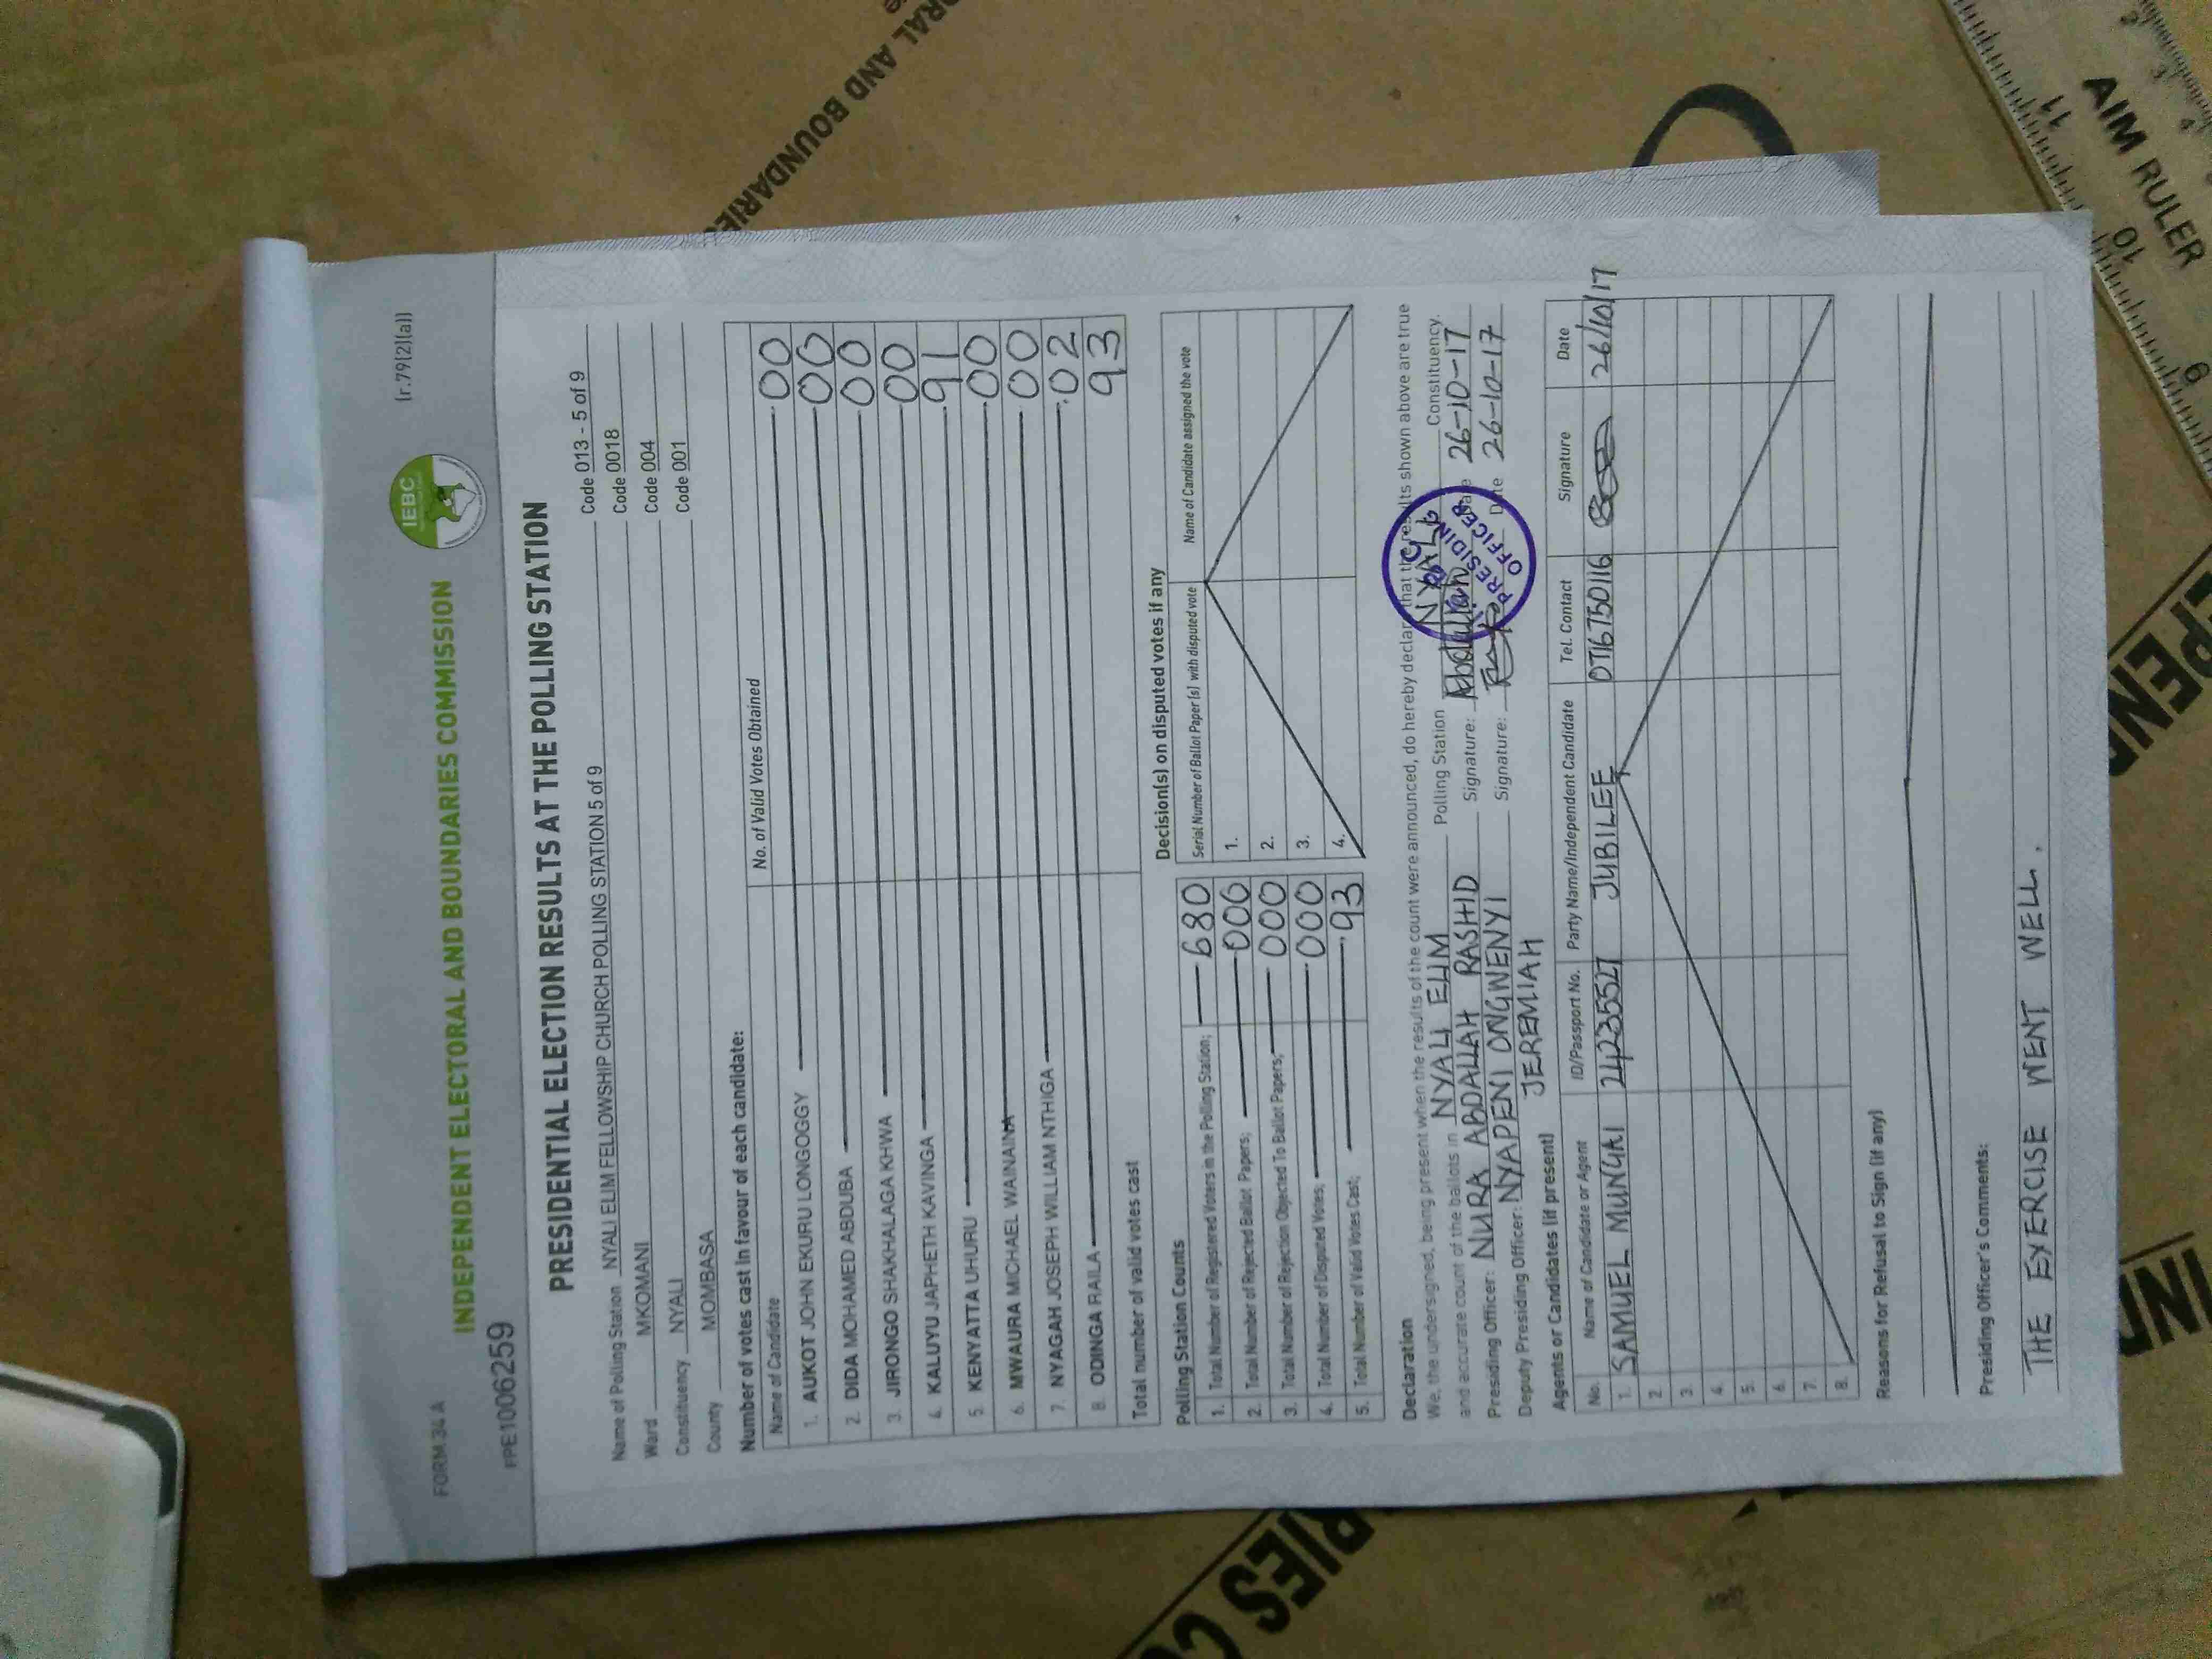 FORM 34 A
INDEPENDENT ELECTORAL AND BOUNDARIES COMMISSION
IEBC
(r.79(2)(a))
FPE10062​59
PRESIDENTIAL ELECTION RESULTS AT THE POLLING STATION
Name of Polling Station NYALI ELIM FELLOWSHIP CHURCH POLLING STATION 5 of 9 Code 013 - 5 of 9
Ward MKOMANI Code 0018
Constituency NYALI Code 004
County MOMBASA Code 001
Number of votes cast in favour of each candidate:
Name of Candidate No. of Valid Votes Obtained
1. AUKOT JOHN EKURU LONGOGGY 00
2. DIDA MOHAMED ABDUBA 00
3. JIRONGO SHAKHALAGA KHWA 00
4. KALUYU JAPHETH KAVINGA 00
5. KENYATTA UHURU 91
6. MWAURA MICHAEL WAINAINA 00
7. NYAGAH JOSEPH WILLIAM NTHIGA 00
8. ODINGA RAILA 02
Total number of valid votes cast 93
Polling Station Counts
1. Total Number of Registered Voters in the Polling Station; 680
2. Total Number of Rejected Ballot Papers; 006
3. Total Number of Rejection Objected To Ballot Papers; 000
4. Total Number of Disputed Votes; 000
5. Total Number of Valid Votes Cast; 93
Decision(s) on disputed votes if any
Serial Number of Ballot Paper (s) with disputed vote Name of Candidate assigned the vote
1.
2.
3.
4.
Declaration
We, the undersigned, being present when the results of the count were announced, do hereby declare that the results shown above are true
and accurate count of the ballots in NYALI ELIM Polling Station NYALI Constituency.
Presiding Officer: NURA ABDALLAH RASHID Signature: Abdallah Date 26-10-17
Deputy Presiding Officer: NYAPENI ONGWENYI Signature: Date 26-10-17
JEREMIAH
PRESIDING
OFFICER
Agents or Candidates (if present)
No. Name of Candidate or Agent ID/Passport No. Party Name/Independent Candidate Tel. Contact Signature Date
1. SAMUEL MUNGAI 24235527 JUBILEE 0716750116 26/10/17
2.
3.
4.
5.
6.
7.
8.
Reasons for Refusal to Sign (if any)
Presiding Officer's Comments:
THE EXERCISE WENT WELL.
RAL AND BOUNDARIES
AND BOUNDARIE
AIM RULER
11
10
9
EPEND
IND
RIES CO